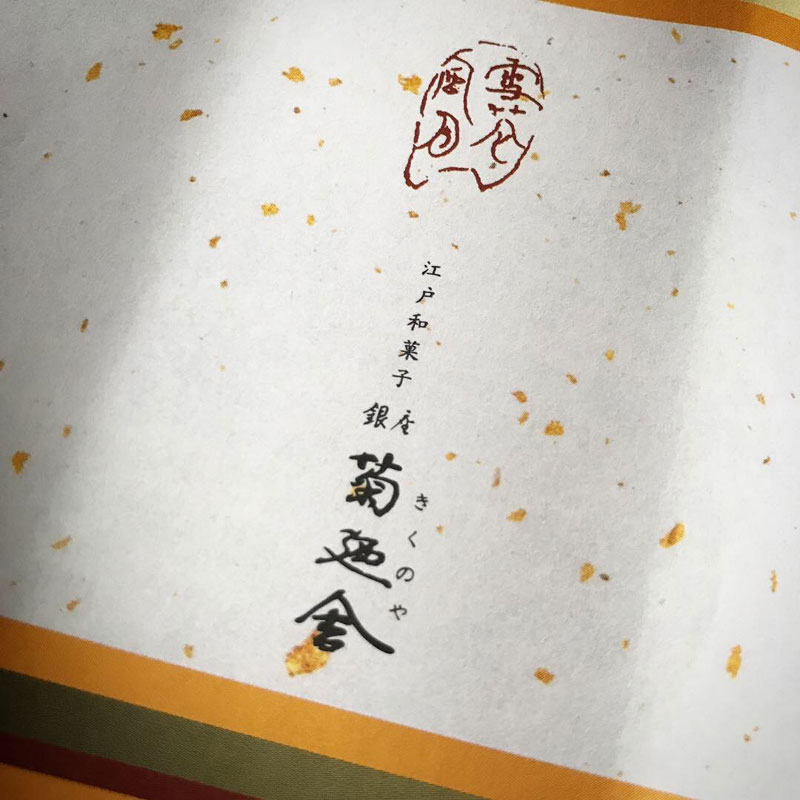 雪花
風月
江戸和菓子
銀座
菊廼舎
きくのや